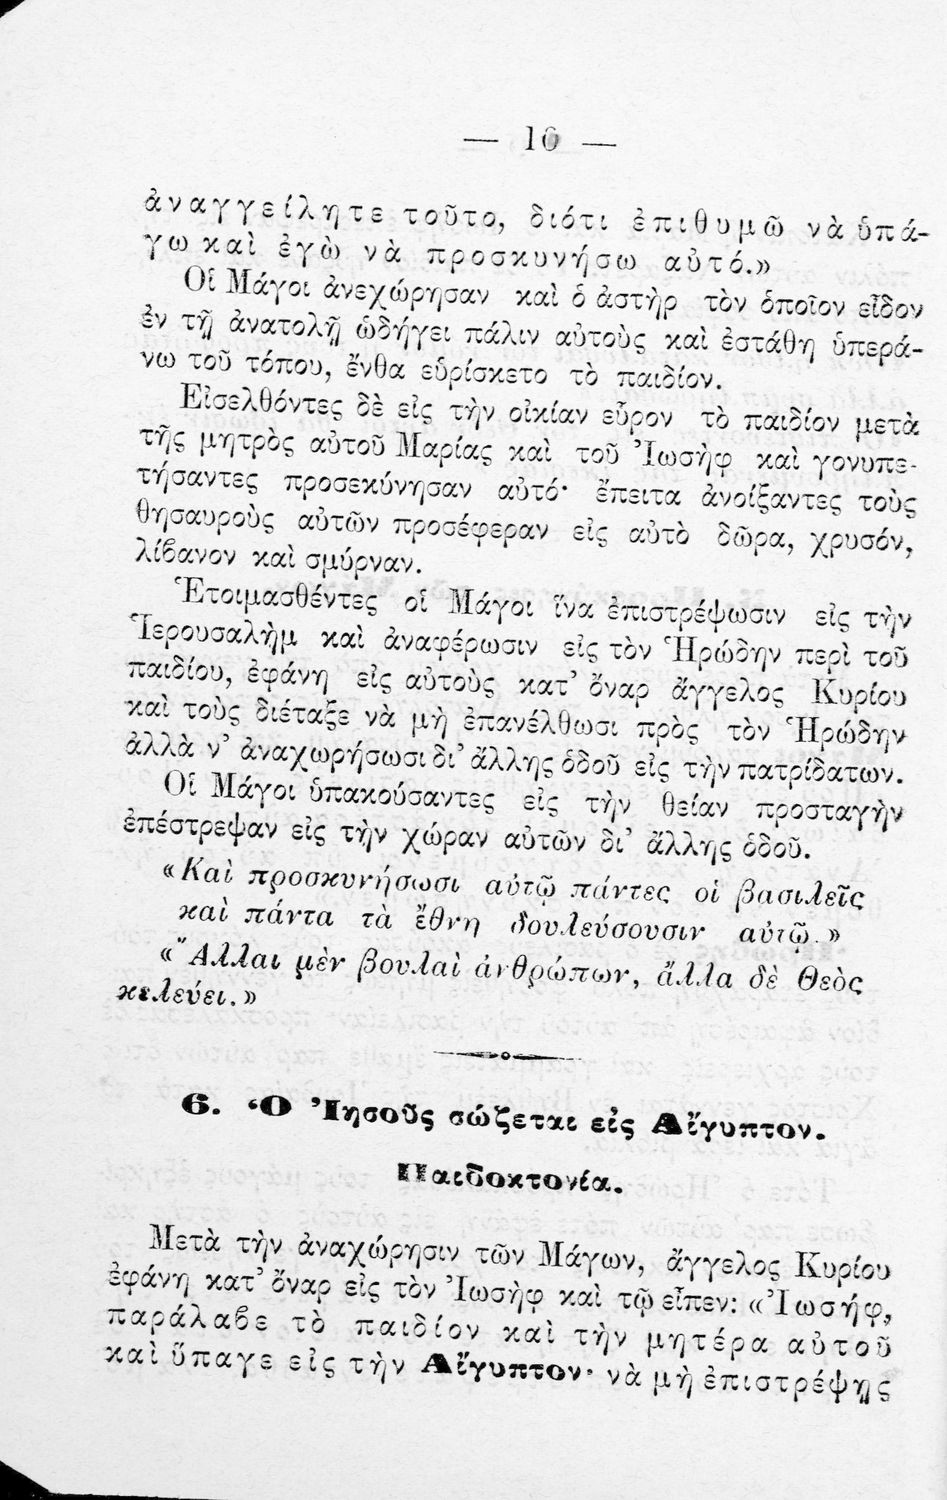 — 16 —
ἀναγγείλητε τοῦτο, διότι ἐπιθυμῶ νὰ ὑπά-
γω καὶ ἐγὼ νὰ προσκυνήσω αὐτό.»
Οἱ Μάγοι ἀνεχώρησαν καὶ ὁ ἀστὴρ τὸν ὁποῖον εἶδον
ἐν τῇ ἀνατολῇ ὡδήγει πάλιν αὐτοὺς καὶ ἐστάθη ὑπερά-
νω τοῦ τόπου, ἔνθα εὑρίσκετο τὸ παιδίον.
Εἰσελθόντες δὲ εἰς τὴν οἰκίαν εὗρον τὸ παιδίον μετὰ
τῆς μητρὸς αὐτοῦ Μαρίας καὶ τοῦ Ἰωσὴφ καὶ γονυπε-
τήσαντες προσεκύνησαν αὐτό· ἔπειτα ἀνοίξαντες τοὺς
θησαυροὺς αὐτῶν προσέφεραν εἰς αὐτὸ δῶρα, χρυσόν,
λίβανον καὶ σμύρναν.
Ἑτοιμασθέντες οἱ Μάγοι ἵνα ἐπιστρέψωσιν εἰς τὴν
Ἱερουσαλὴμ καὶ ἀναφέρωσιν εἰς τὸν Ἡρώδην περὶ τοῦ
παιδίου, ἐφάνη εἰς αὐτοὺς κατ' ὄναρ ἄγγελος Κυρίου
καὶ τοὺς διέταξε νὰ μὴ ἐπανέλθωσι πρὸς τὸν Ἡρώδην
ἀλλὰ ν' ἀναχωρήσωσι δι' ἄλλης ὁδοῦ εἰς τὴν πατρίδατων.
Οἱ Μάγοι ὑπακούσαντες εἰς τὴν θείαν προσταγὴν
ἐπέστρεψαν εἰς τὴν χώραν αὐτῶν δι' ἄλλης ὁδοῦ.
«Καὶ προσκυνήσωσι αὐτῷ πάντες οἱ βασιλεῖς
καὶ πάντα τὰ ἔθνη δουλεύσουσιν αὐτῷ.»
«Ἄλλαι μὲν βουλαὶ ἀνθρώπων, ἄλλα δὲ Θεὸς
κελεύει.»
6. Ὁ Ἰησοῦς σώζεται εἰς Αἴγυπτον.
Παιδοκτονία.
Μετὰ τὴν ἀναχώρησιν τῶν Μάγων, ἄγγελος Κυρίου
ἐφάνη κατ' ὄναρ εἰς τὸν Ἰωσὴφ καὶ τῷ εἶπεν: «Ἰωσήφ,
παράλαβε τὸ παιδίον καὶ τὴν μητέρα αὐτοῦ
καὶ ὕπαγε εἰς τὴν Αἴγυπτον· νὰ μὴ ἐπιστρέψῃς